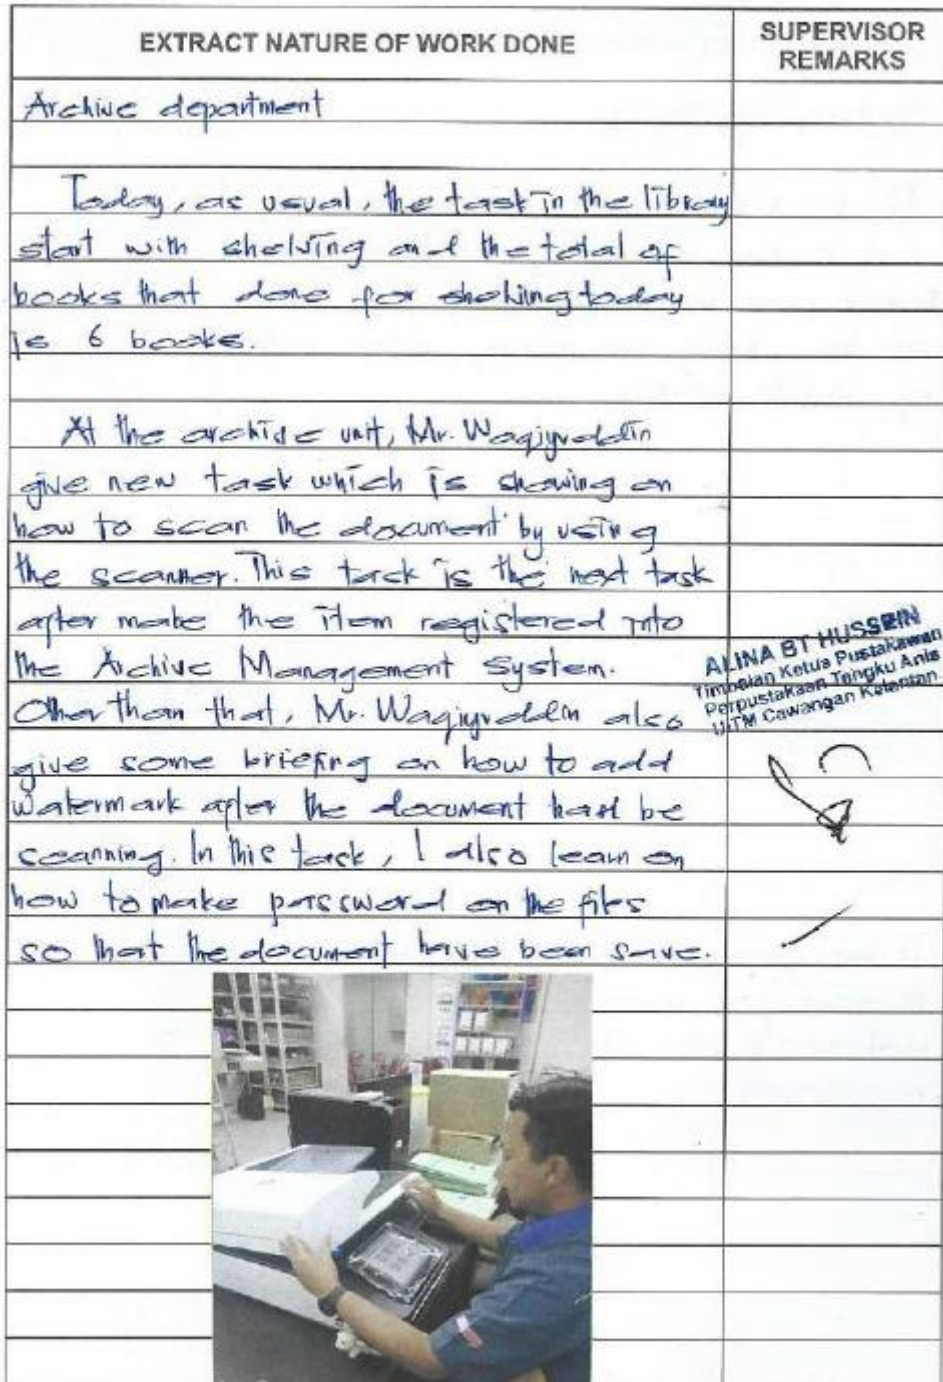 EXTRACT NATURE OF WORK DONE
SUPERVISOR
REMARKS
Archive department
Today, as usual, the task in the library
start with shelving and the total of
books that done for shelving today
is 6 books.
At the archive unit, Mr. Waqiyuddin
give new task which is showing on
how to scan the document by using
the scanner. This task is the next task
after make the item registered into
the Archive Management System.
Other than that, Mr. Waqiyuddin also
give some briefing on how to add
watermark after the document hast be
scanning. In this task, I also learn on
how to make password on the files
so that the document have been save.
ALINA BT HUSSEIN
Timbalan Ketua Pustakawan
Perpustakaan Tengku Anis
UiTM Cawangan Kelantan